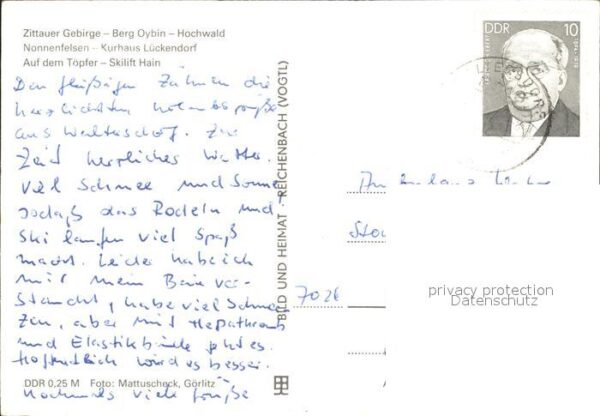 Zittauer Gebirge – Berg Oybin – Hochwald
Nonnenfelsen – Kurhaus Lückendorf
Auf dem Töpfer – Skilift Hain
DDR 10
Den fleißigen die
herzlichsten Urlaubsgrüße
aus Waltersdorf. Zur
Zeit herrliches Wetter.
Viel Schnee und Sonne,
sodaß das Rodeln und
Ski laufen viel Spaß
macht. Leider habe ich
mir mein Bein ver-
staucht, habe viel Schmer-
zen, aber mit Hepathromb
und Elastikbinde geht es.
Hoffentlich wird es besser.
Nochmals viele Grüße
BILD UND HEIMAT · REICHENBACH (VOGTL)
An
7026
privacy protection
Datenschutz
DDR 0,25 M Foto: Mattuscheck, Görlitz